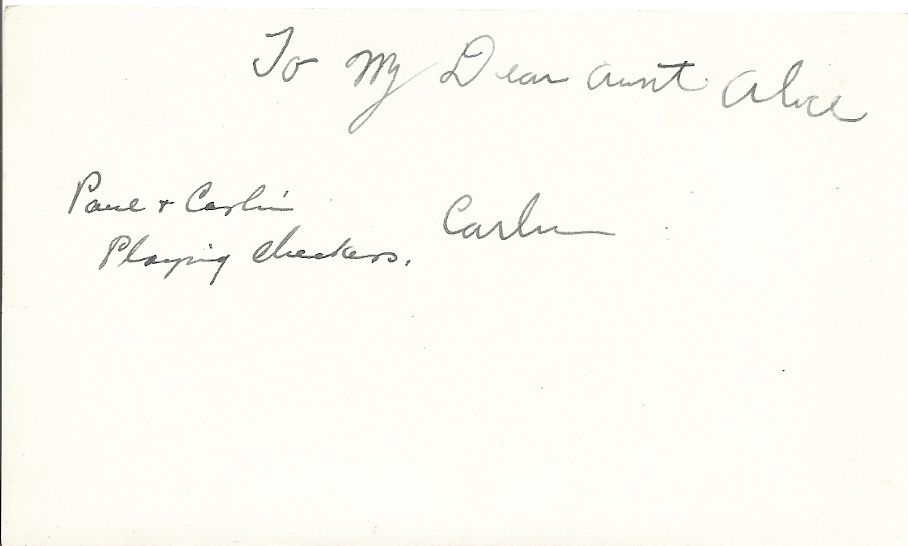 To My Dear Aunt Alice
Paul & Carlin
Playing Checkers.
Carlin